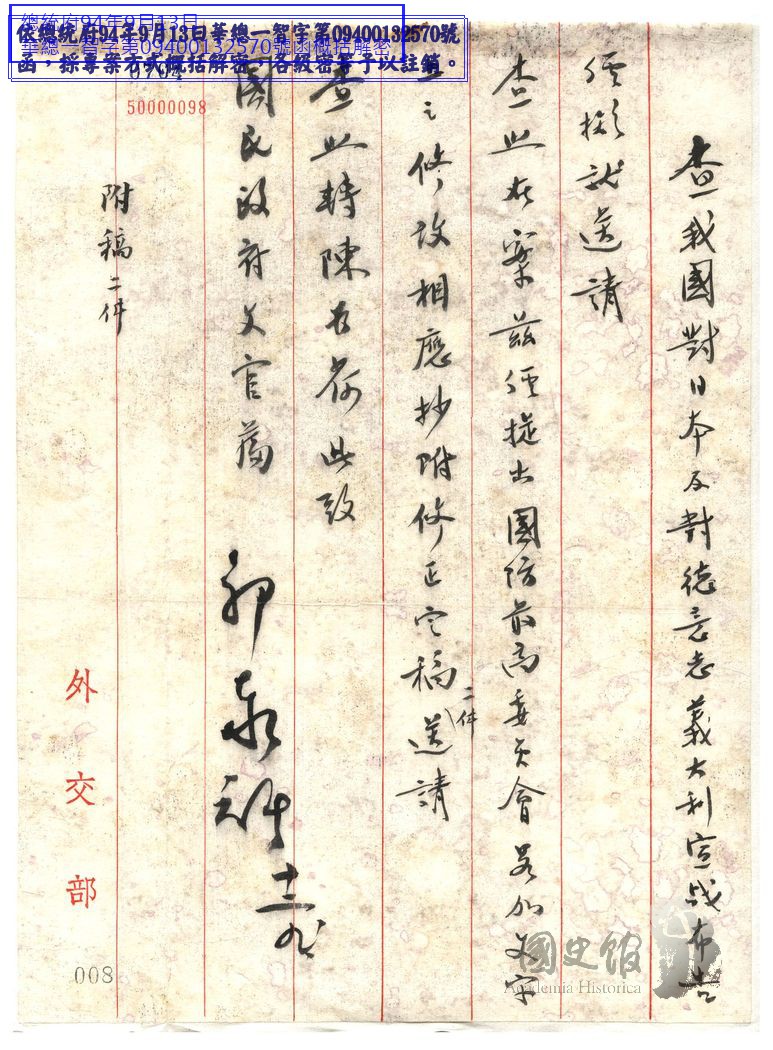 總統府94年9月13日
華總一智字第09400132570號函概括解密
依總統府94年9月13日華總一智字第09400132570號
函，採專案方式概括解密，各級密等予以註銷。
50000098
查我國對日本及對德意志義大利宣戰布告
經擬就送請
查照在案茲經提出國防最高委員會略加文字
上之修改相應抄附修正定稿二件送請
查照轉陳為荷此致
國民政府文官處
十二 九
附稿二件
外交部
008
國史館
Academia Historica